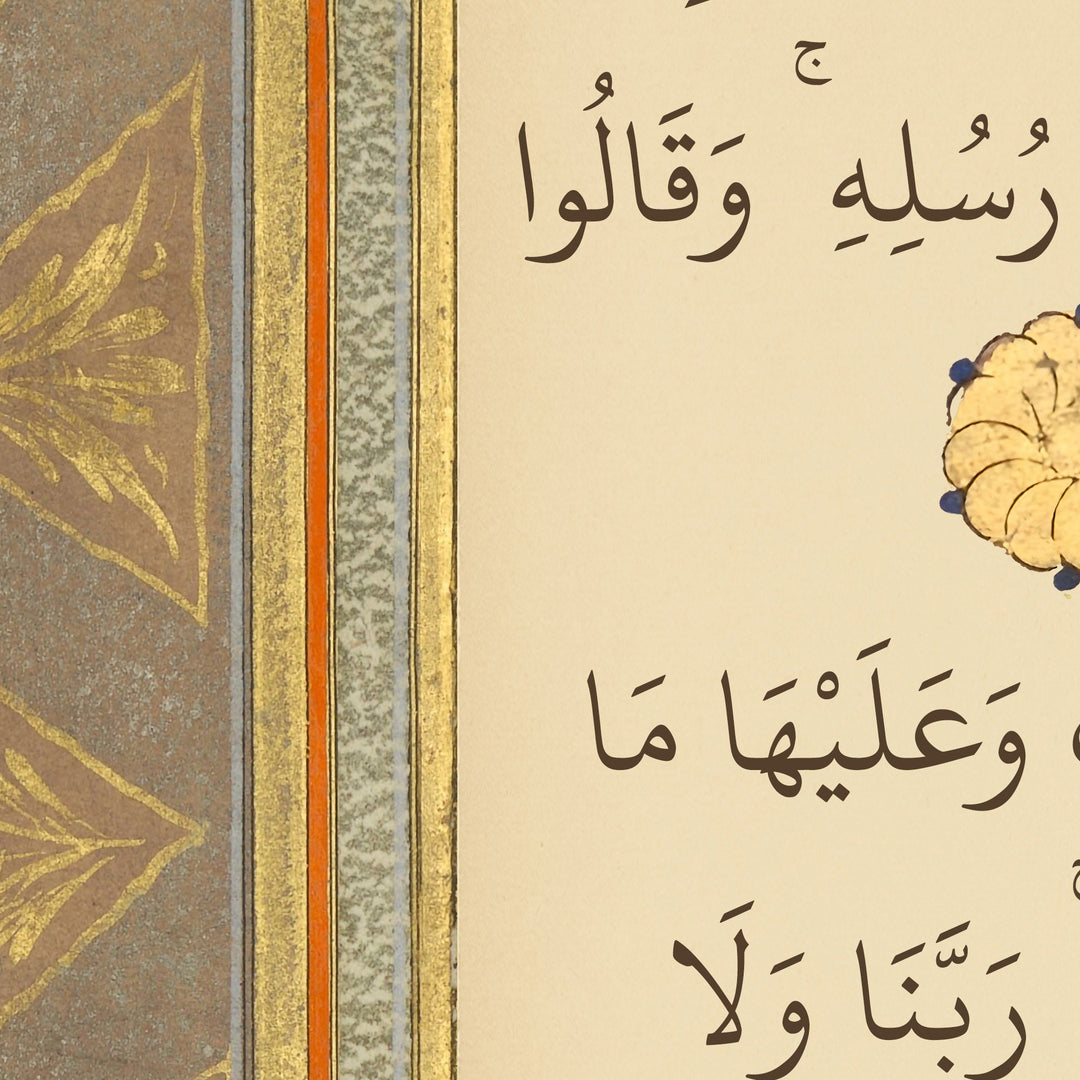 رُسُلِهِ ۚ وَقَالُوا
وَعَلَيْهَا مَا
رَبَّنَا وَلَا